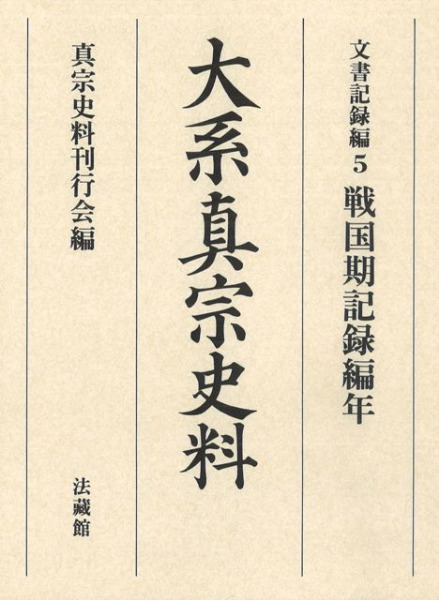 文書記録編 5 戦国期記録編年
大系真宗史料
真宗史料刊行会編
法藏館